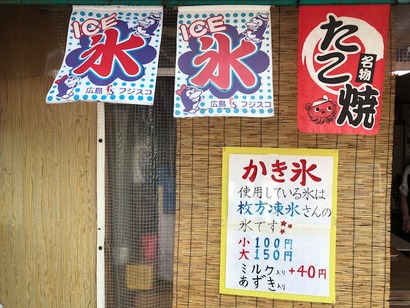 ICE
氷
広島 フジスコ
ICE
氷
広島 フジスコ
名物
たこ焼
かき氷
使用している氷は
枚方凍氷さんの
氷です
小 100円
大 150円
ミルク入り +40円
あずき入り